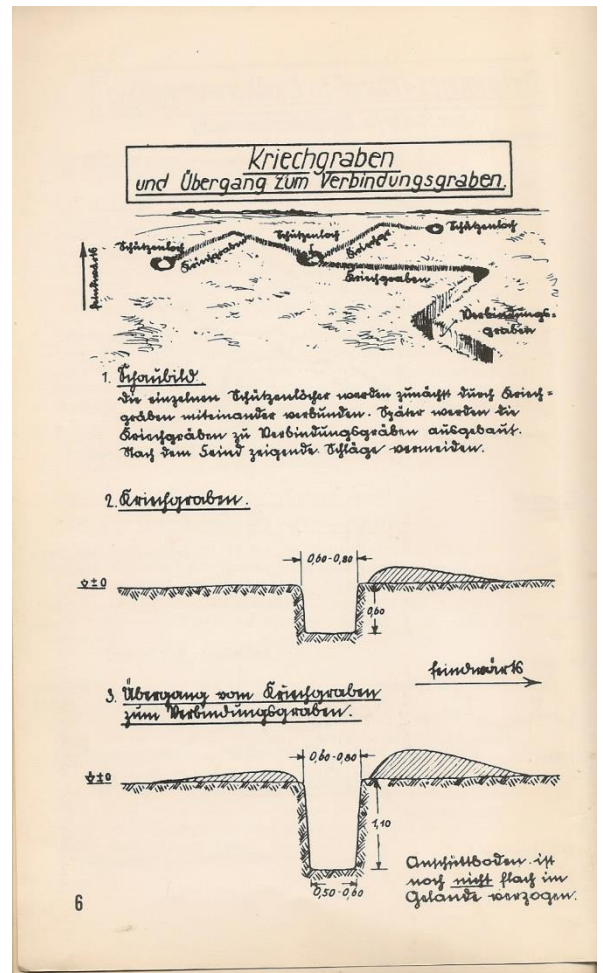 Kriechgraben
und Übergang zum Verbindungsgraben.
Schützenloch
Kriechgraben
Schützenloch
Kriechgr.
Schützenloch
feindwärts
Kriechgraben
Verbindungs-
graben
1. Schaubild.
Die einzelnen Schützenlöcher werden zunächst durch Kriech=
gräben miteinander verbunden. Später werden die
Kriechgräben zu Verbindungsgräben ausgebaut.
Nach dem Feind zeigende Schläge vermeiden.
2. Kriechgraben.
0,60-0,80
±0
0,60
feindwärts
3. Übergang vom Kriechgraben
zum Verbindungsgraben.
0,60-0,80
±0
1,10
0,50-0,60
Anschüttboden ist
noch nicht flach im
Gelände verzogen.
6